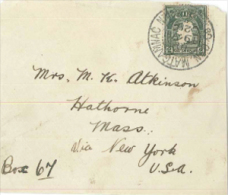 Mrs. M. K. Atkinson
Hathorne
Mass.
via New York
U.S.A.
Box 67